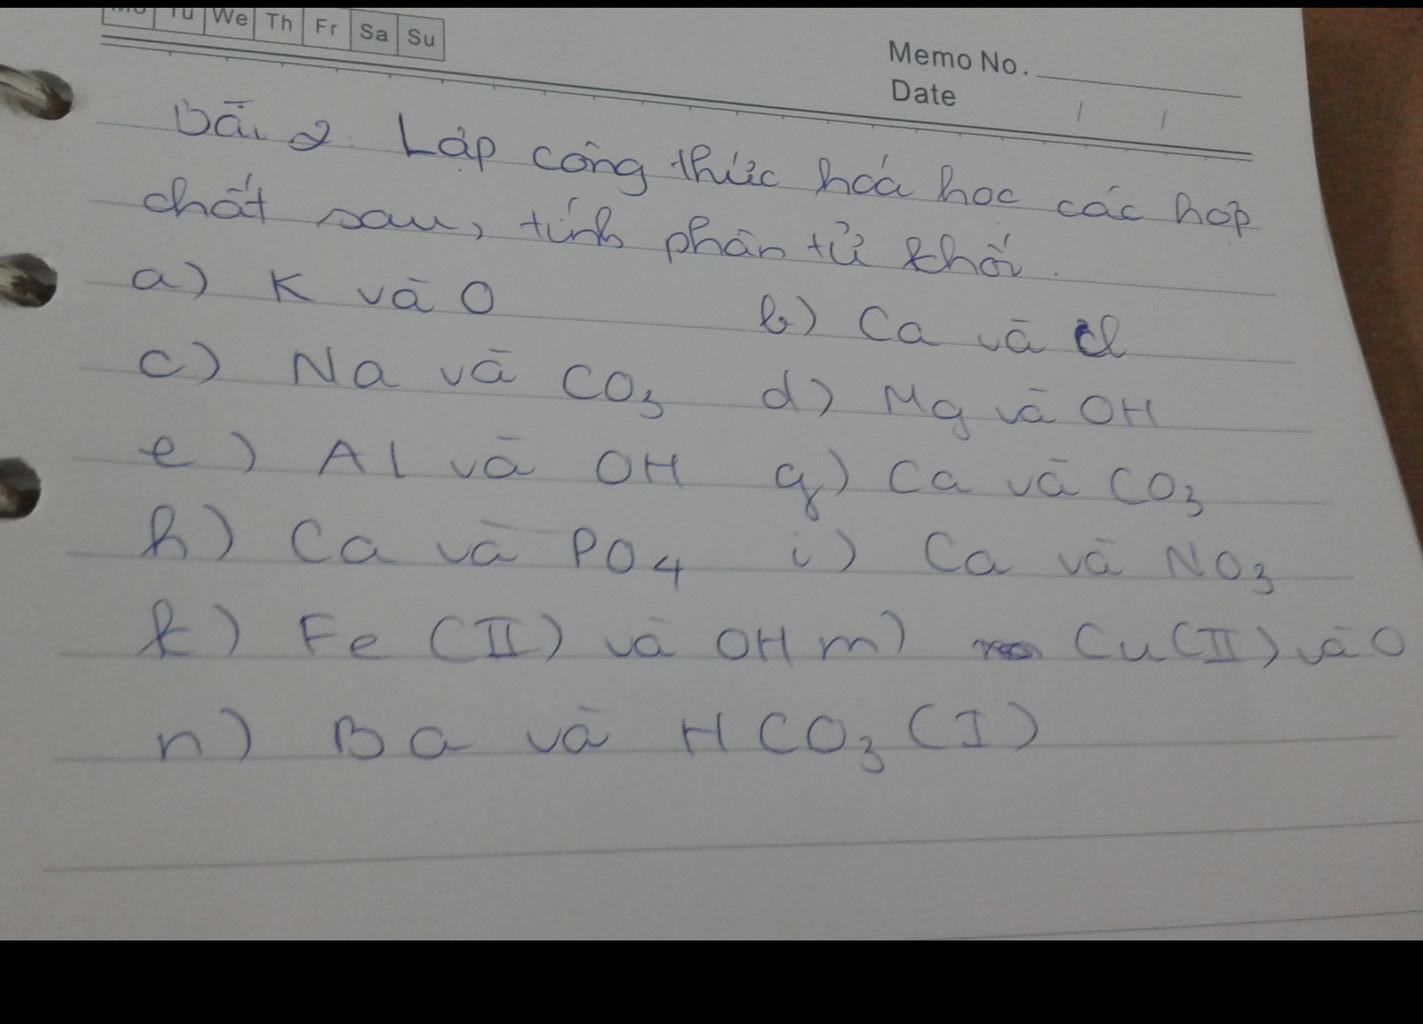 Mo Tu We Th Fr Sa Su
Memo No.
Date / /
Bài 2. Lập công thức hoá học các hợp
chất sau, tính phân tử khối.
a) K và O b) Ca và Cl
c) Na và CO₃ d) Mg và OH
e) Al và OH g) Ca và CO₃
h) Ca và PO₄ i) Ca và NO₃
k) Fe (II) và OH m) Cu (II) và O
n) Ba và HCO₃ (I)